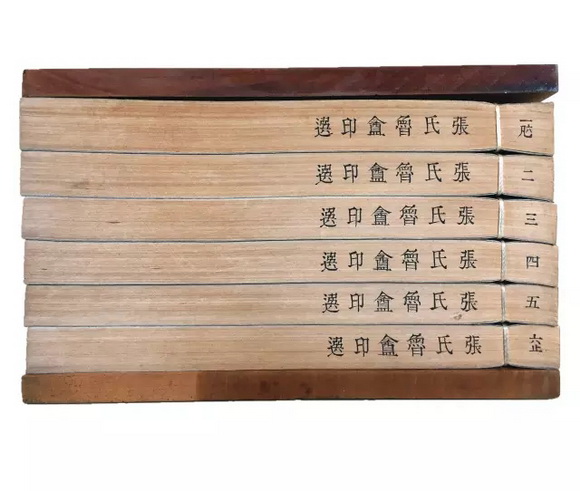 一 張氏魯盦印選
二 張氏魯盦印選
三 張氏魯盦印選
四 張氏魯盦印選
五 張氏魯盦印選
六止 張氏魯盦印選